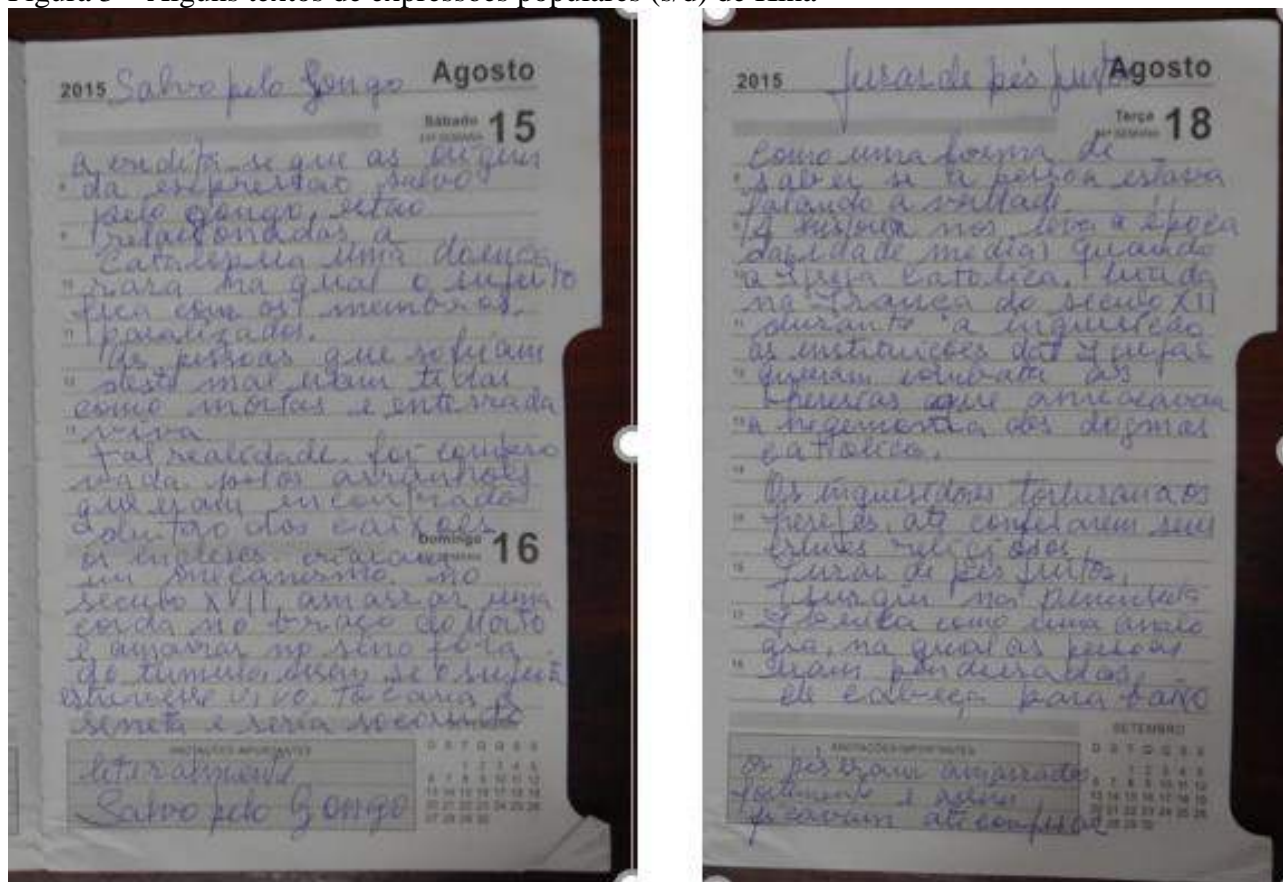 2015 Salvo pelo Gongo Agosto
Sábado 15
a credita-se que as origen
da expressão salvo
pelo gongo, estão
relacionadas a
Catalepsia uma doença
rara na qual o sujeito
fica com os membros
paralizados.
As pessoas que sofriam
deste mal eram tidas
como mortas e enterrada
viva
Tal realidade foi confir
mada pelos arranhões
que eram encontrados
dentro dos caixões
Domingo 16
os ingleses criaram
um mecanismo no
século XVII, amarrar uma
corda no braço do morto
e amarrar no sino fora
do tumulo, assim se o sujeito
estivesse vivo, tocaria a
e seria socorrido
ANOTAÇÕES IMPORTANTES
D S T Q Q S S
literamente
Salvo pelo Gongo
2015 Jurar de pés juntos Agosto
Terça 18
Como uma forma de
saber se a pessoa estava
falando a verdade
A historia nos leva a época
da idade media, quando
a Igreja Catolica,
na França do século XII
durante a inquisição
as instituições das Igrejas
combater as
heresias que ameaçavam
a hegemonia dos dogmas
catolica.
Os inquisidores torturava os
hereges, até confesarem seus
crimes religiosos
Jurar de pés juntos,
surgiu
como uma analo
gia, na qual as pessoas
eram penduradas,
de cabeça para baixo
SETEMBRO
ANOTAÇÕES IMPORTANTES
D S T Q Q S S
os pés eram amarrados
fortemente e assim
ficavam até confesar